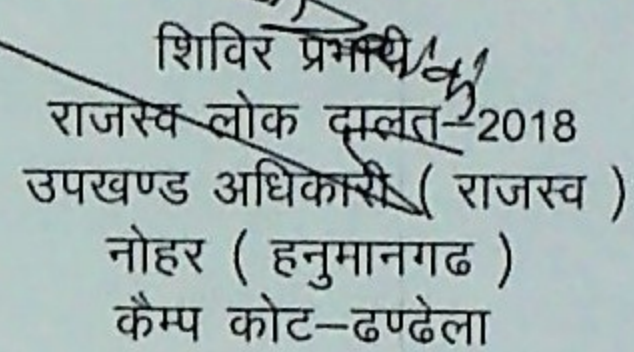 शिविर प्रभारी
राजस्व लोक दालत-2018
उपखण्ड अधिकारी ( राजस्व )
नोहर ( हनुमानगढ )
कैम्प कोट-ढण्ढेला